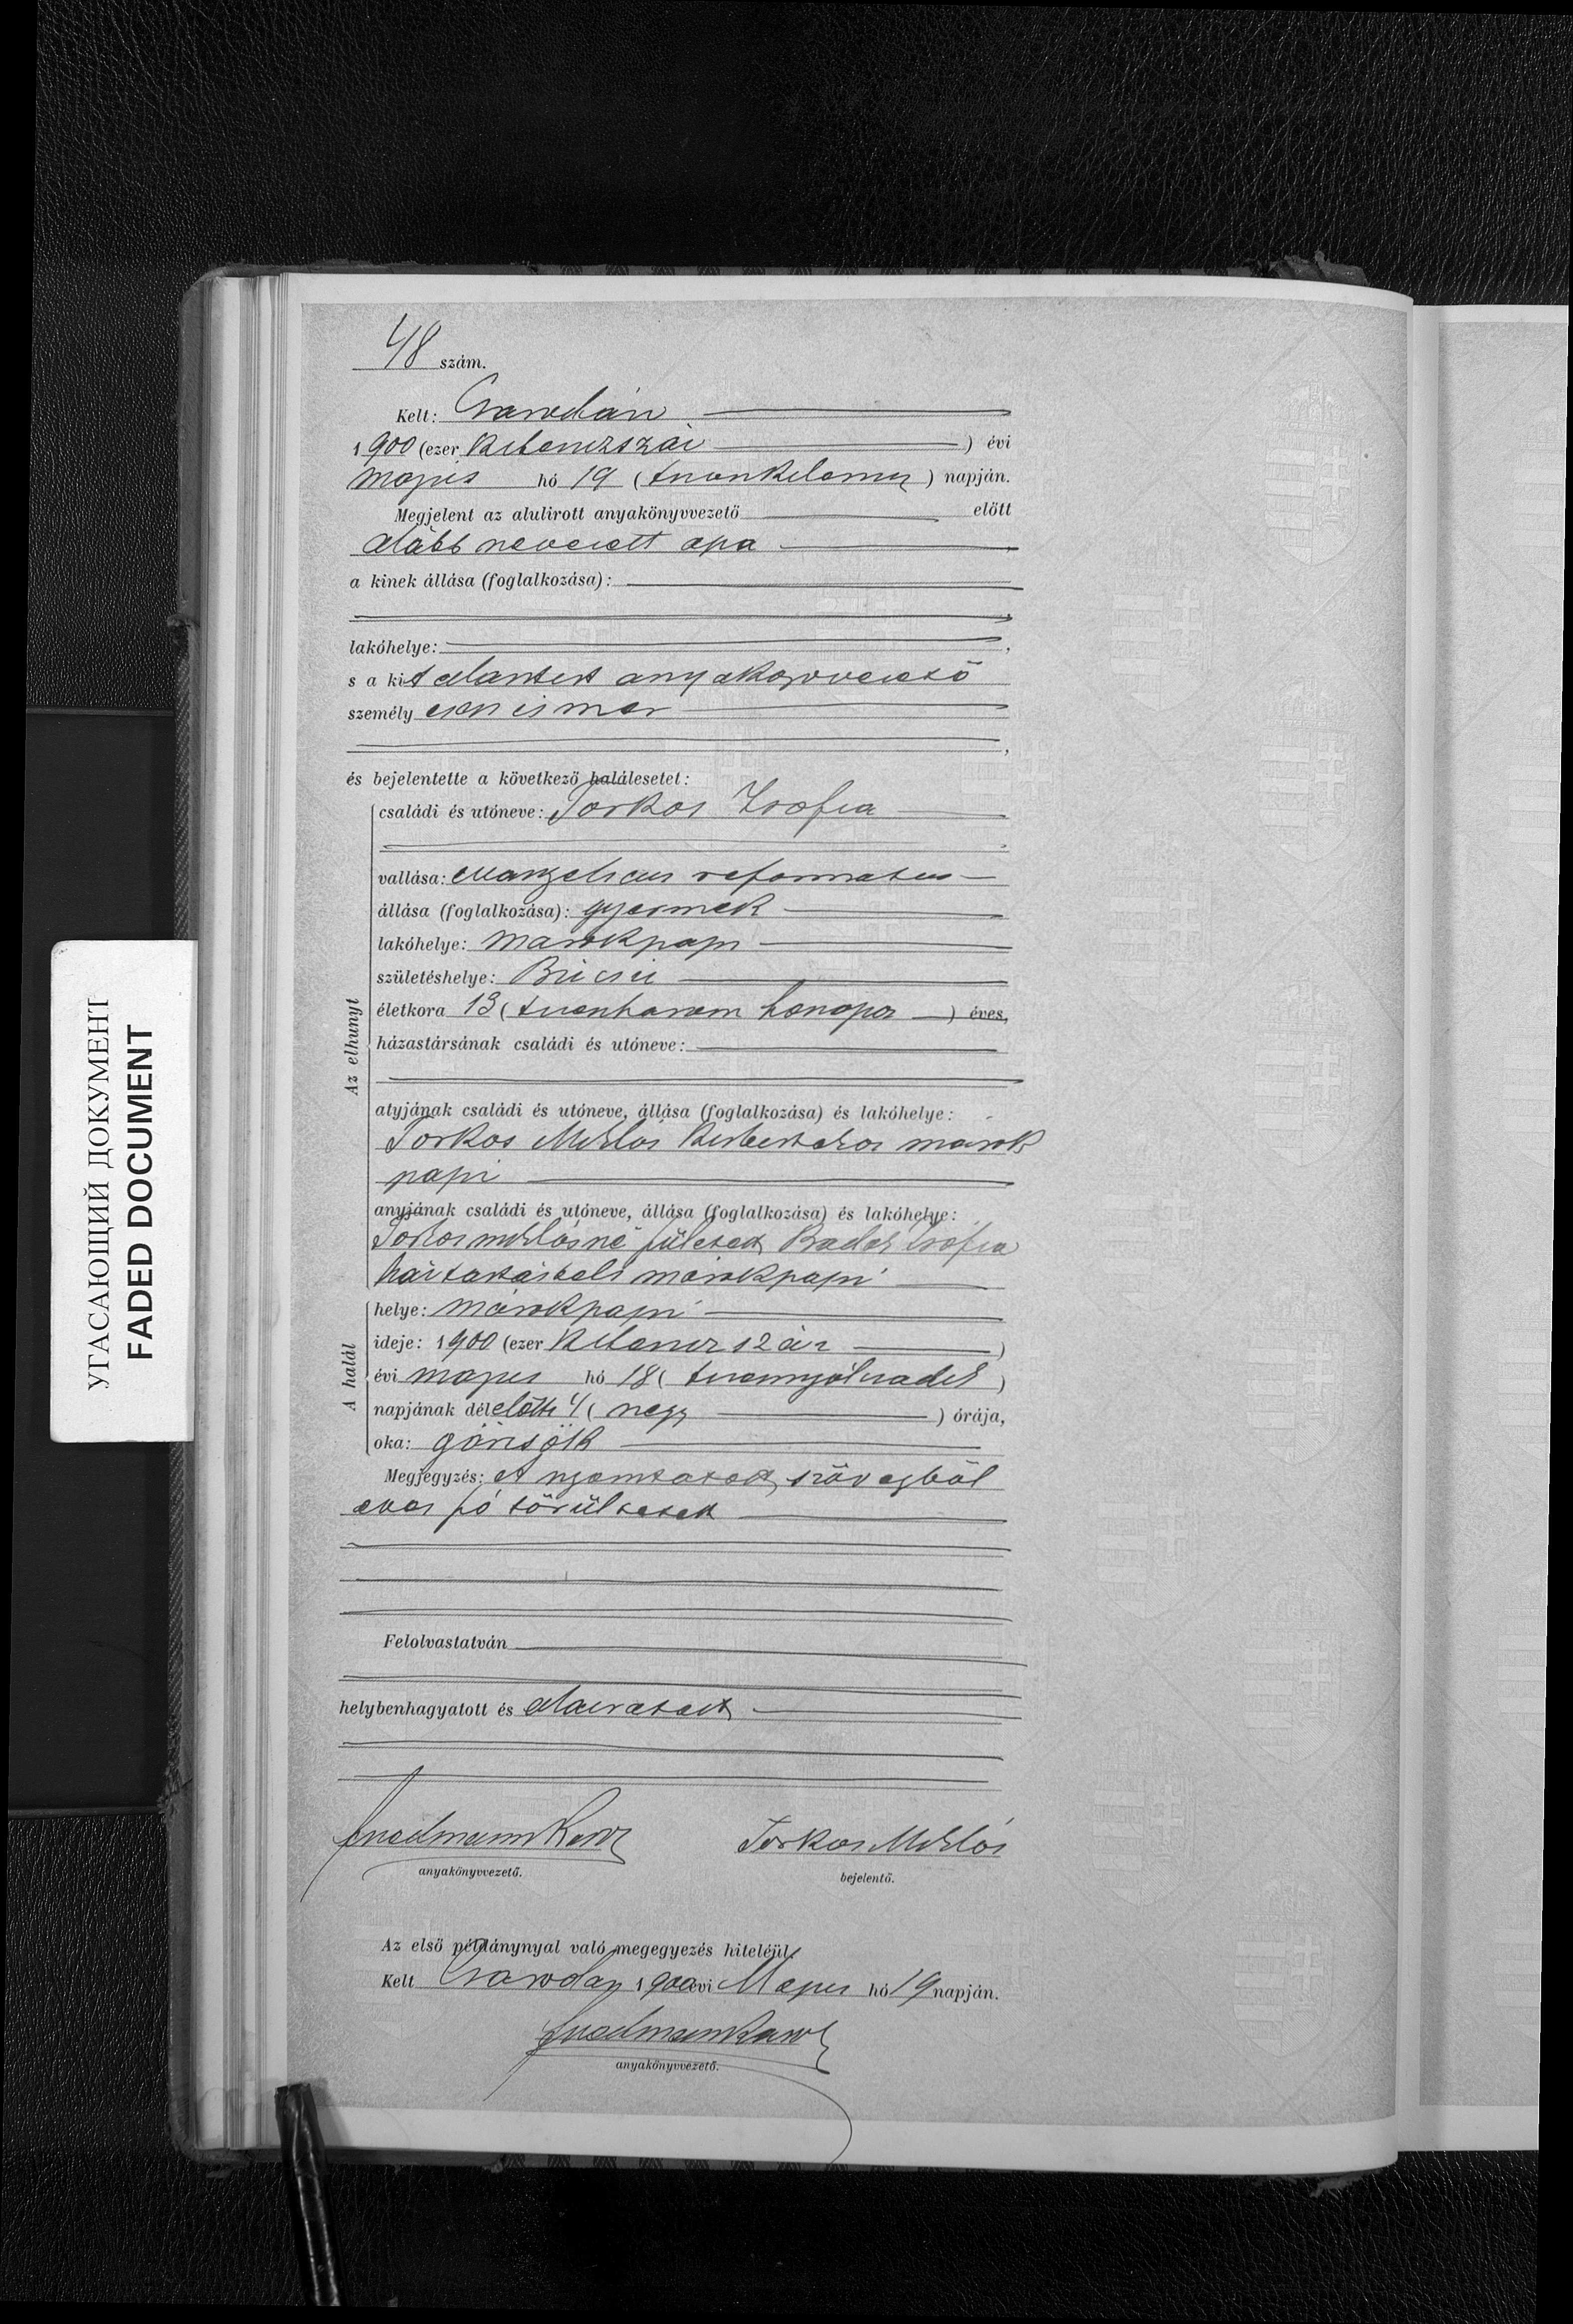 48 szám.
Kelt: Csarodán
1900 (ezer kilenczszáz) évi
május hó 19 (tizenkilencz) napján.
Megjelent az alulirott anyakönyvvezető előtt
alább nevezett apa
a kinek állása (foglalkozása):
lakóhelye:
s a kit alantirt anyakönyvvezető
személyesen ismer
és bejelentette a következő halálesetet:
Az elhunyt
családi és utóneve: Torkos Zsofia
vallása: evangelicus reformatus
állása (foglalkozása): gyermek
lakóhelye: marokpapi
születéshelye: Búcsú
életkora 13 (tizenharom honapos) éves,
házastársának családi és utóneve:
atyjának családi és utóneve, állása (foglalkozása) és lakóhelye:
Torkos Miklós márok
papi
anyjának családi és utóneve, állása (foglalkozása) és lakóhelye:
Torkos miklósné születet Zsófia
háztartásbeli márokpapi
A halál
helye: márokpapi
ideje: 1900 (ezer kilenczszáz)
évi május hó 18 (tizennyólczadik)
napjának délelőtti 4 (negy) órája,
oka: görcsök
Megjegyzés: A nyomtatott szövegböl
éves szó töröltetett
Felolvastatván
helybenhagyatott és alairatott
anyakönyvvezető.
Torkos Miklós
bejelentő.
Az első példánynyal való megegyezés hiteléül.
Kelt Csarodan 1900 évi Május hó 19 napján.
anyakönyvvezető.
УГАСАЮЩИЙ ДОКУМЕНТ
FADED DOCUMENT